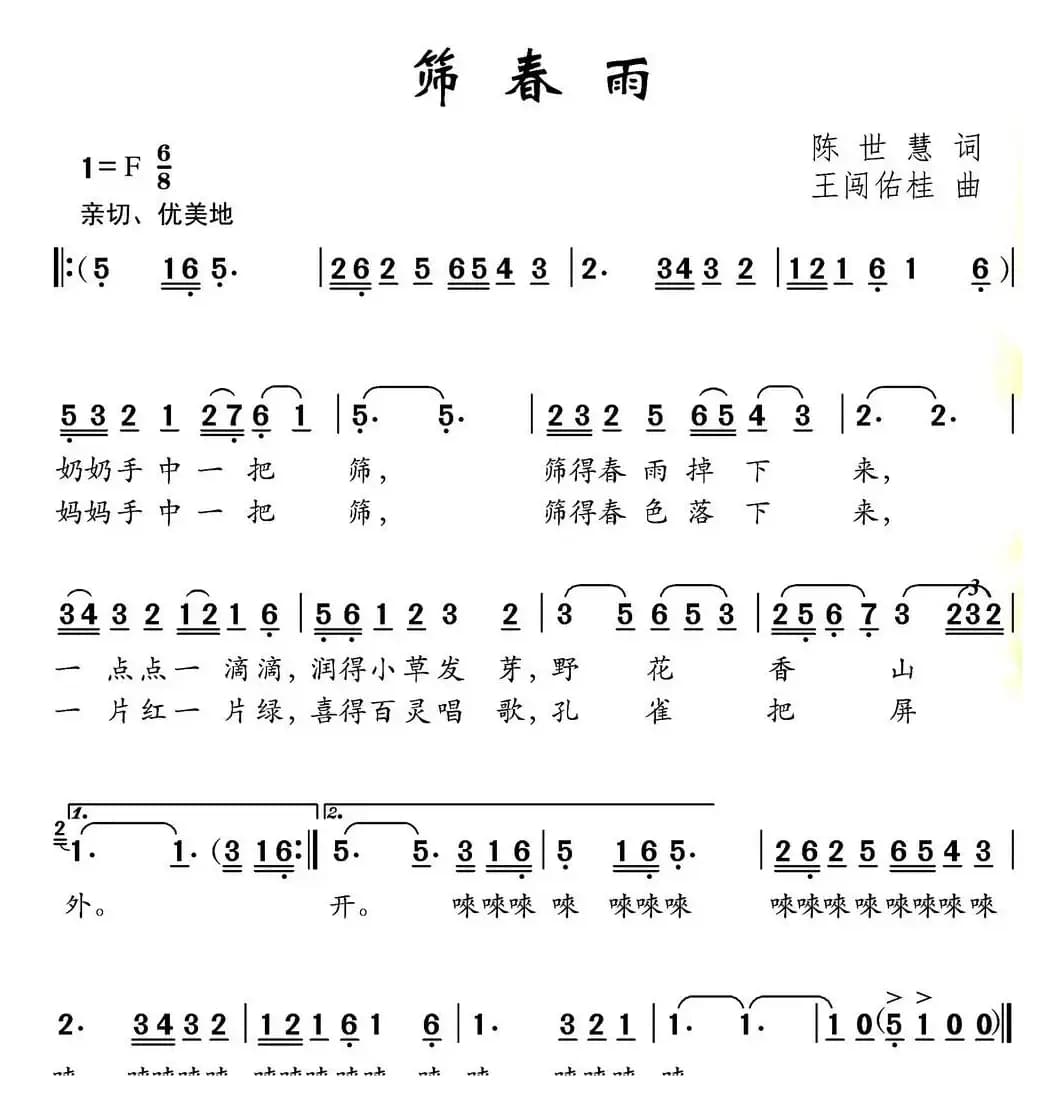 筛春雨
陈世慧 词
1=F 6/8
王闯佑桂 曲
亲切、优美地
‖:(5 16 5. |26 2 5 65 4 3|2. 34 3 2|12 1 6 1 6)|
53 2 1 27 6 1|5. 5. |23 2 5 65 4 3|2. 2. |
奶奶手中一把筛, 筛得春雨掉下来,
妈妈手中一把筛, 筛得春色落下来,
34 3 2 12 1 6|56 1 2 3 2|3 5 6 5 3|25 6 7 3 232|
一点点一滴滴, 润得小草发芽, 野花香山
一片红一片绿, 喜得百灵唱歌, 孔雀把屏
1. 2.
2 1. 1. (3 16:‖5. 5. 3 16|5 16 5. |26 2 5 65 4 3|
外。 开。 唻唻唻 唻 唻唻唻 唻唻唻唻唻唻唻唻
2. 34 3 2|12 1 6 1 6|1. 3 2 1|1. 1. |1 0(5 1 0 0)‖